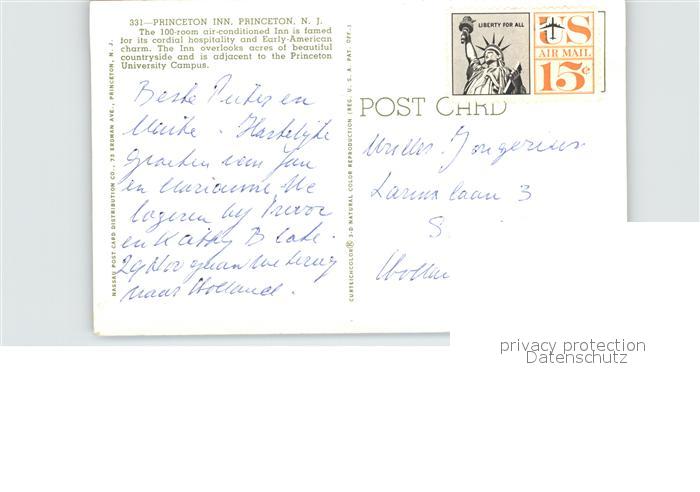 331—PRINCETON INN, PRINCETON, N. J.
The 100-room air-conditioned Inn is famed
for its cordial hospitality and Early-American
charm. The Inn overlooks acres of beautiful
countryside and is adjacent to the Princeton
University Campus.
Beste Pieter en
Hartelijke
groeten van Jan
en Marianne We
logeren by Trevor
en Kathy B
29 Nov gaan we terug
naar Holland.
NASSAU POST CARD DISTRIBUTION CO., 73 ERDMAN AVE., PRINCETON, N. J.
CURTEICHCOLOR® 3-D NATURAL COLOR REPRODUCTION (REG. U. S. A. PAT. OFF.)
LIBERTY FOR ALL
US
AIR MAIL
15¢
POST CARD
Jongerius
laan 3
S
Hollan
privacy protection
Datenschutz